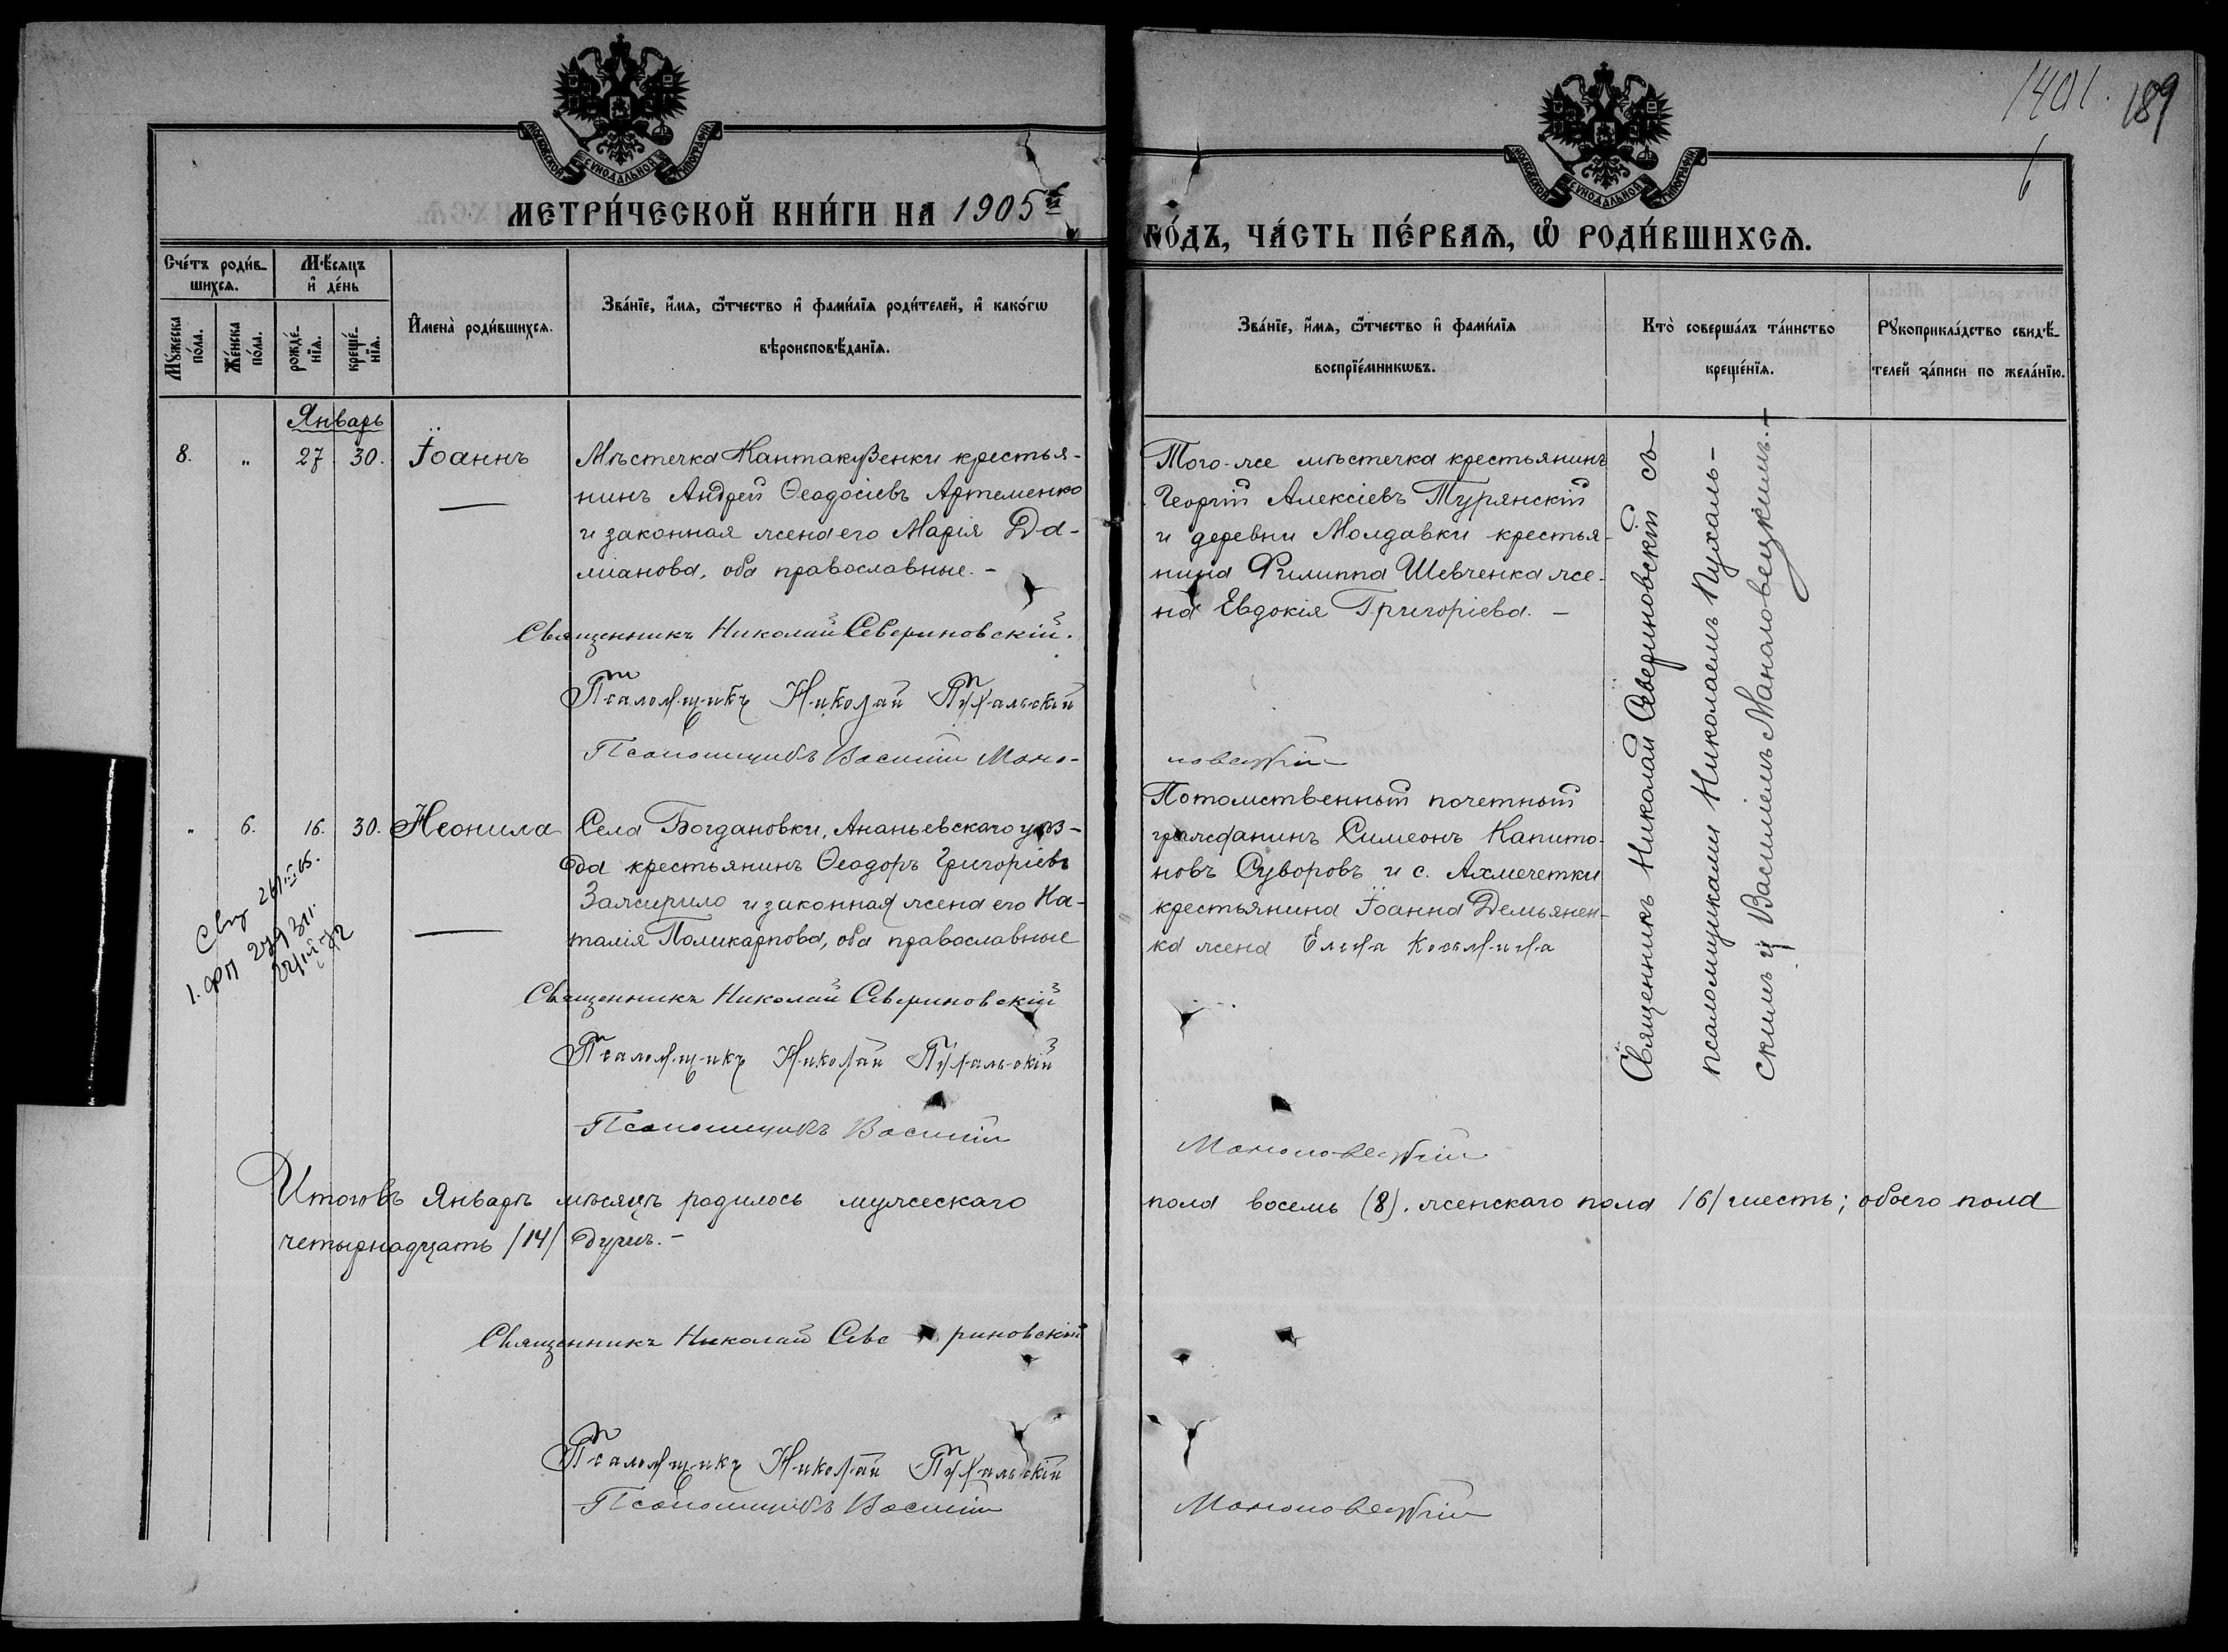 1401. 189
6
МОСКОВСКОЙ СѴНОДАЛЬНОЙ ТИПОГРАФІИ
МОСКОВСКОЙ СѴНОДАЛЬНОЙ ТИПОГРАФІИ
МЕТРИ́ЧЕСКОЙ КНИ́ГИ НА 1905й
ГО́ДЪ, ЧА́СТЬ ПЕ́РВАѦ, Ѡ҆ РОДИ́ВШИХСѦ.
Сче́тъ роди́в-
шихсѧ.
Мѣ́сѧцъ
и҆ де́нь
Мꙋ́жеска
по́ла.
Же́нска
по́ла.
рожде́-
нїѧ.
креще́-
нїѧ.
И҆мена̀ роди́вшихсѧ.
Зва́нїе, и҆́мѧ, ѻ҆́тчество и҆ фами́лїѧ роди́телей, и҆ како́гѡ
вѣроисповѣ́данїѧ.
Зва́нїе, и҆́мѧ, ѻ҆́тчество и҆ фами́лїѧ
воспрїе́мникѡвъ.
Кто̀ соверша́лъ та́инство
креще́нїѧ.
Рꙋкоприкла́дство свидѣ́-
телей за́писи по жела́нїю.
Январь
8. „ 27 30. Іоаннъ
Мѣстечка Кантакузенки крестья-
нинъ Андрей Ѳеодосіевъ Артеменко
и законная жена его Марія Да-
міанова, оба православные. -
Священникъ Николай Севериновскій.
Псаломщикъ Николай Пухальскій
Псаломщикъ Василій Мано-
Того-же мѣстечка крестьянинъ
Георгій Алексіевъ Турянскій
и деревни Молдавки крестья-
нина Филиппа Шевченка же-
на Евдокія Григоріева. -
ловецкій
Священникъ Николай Севериновскій съ
псаломщиками Николаемъ Пухаль-
скимъ и Василіемъ Маналовецкимъ. -
„ 6. 16. 30. Неонила
Села Богдановки, Ананьевскаго уѣз-
да крестьянинъ Ѳеодоръ Григоріевъ
Зажирило и законная жена его На-
талія Поликарпова, оба православные
Священникъ Николай Севериновскій
Псаломщикъ Николай Пухальскій
Псаломщикъ Василій
Потомственный почетный
гражданинъ Симеонъ Капито-
новъ Суворовъ и с. Ахмечетки
крестьянина Іоанна Демьянен-
ка жена Елена Косьмина
Маноловецкій
Итого въ Январѣ мѣсяцѣ родилось мужескаго
пола восемь (8). женскаго пола /6/ шесть; обоего пола
четырнадцать /14/ душъ. -
Священникъ Николай Севе риновскій
Псаломщикъ Николай Пухальскій
Псаломщикъ Василій
Маноловецкій